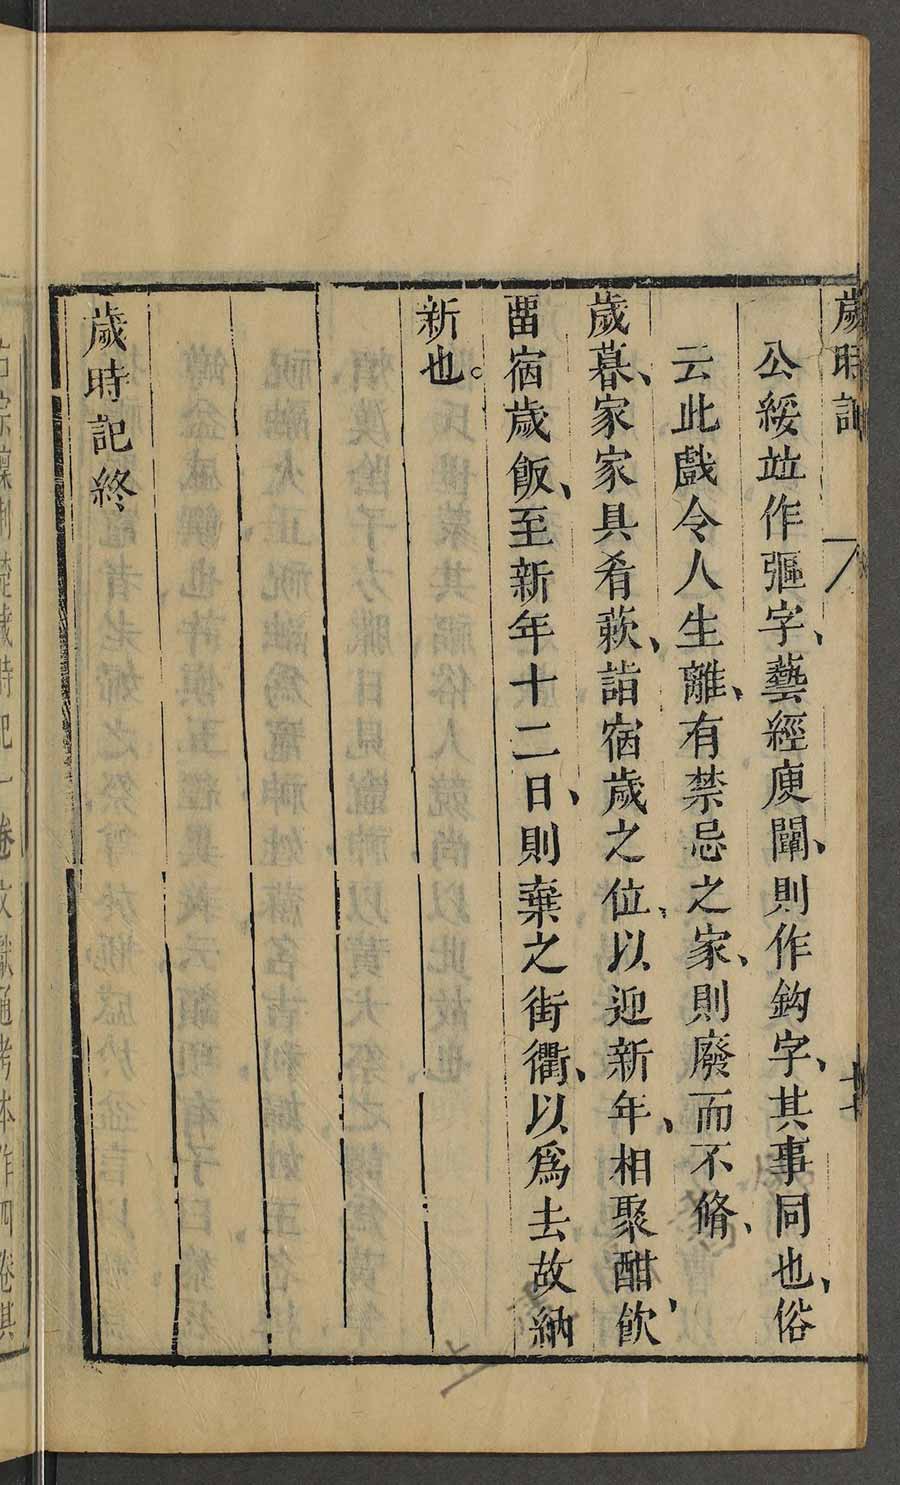 歲時記
公綏竝作彄字、藝經庾闡、則作鈎字、其事同也、俗
云此戲令人生離、有禁忌之家、則廢而不脩、
歲暮、家家具肴蔌、詣宿歲之位、以迎新年、相聚酣飲、
畱宿歲飯、至新年十二日、則棄之街衢、以爲去故納
新也。
歲時記終